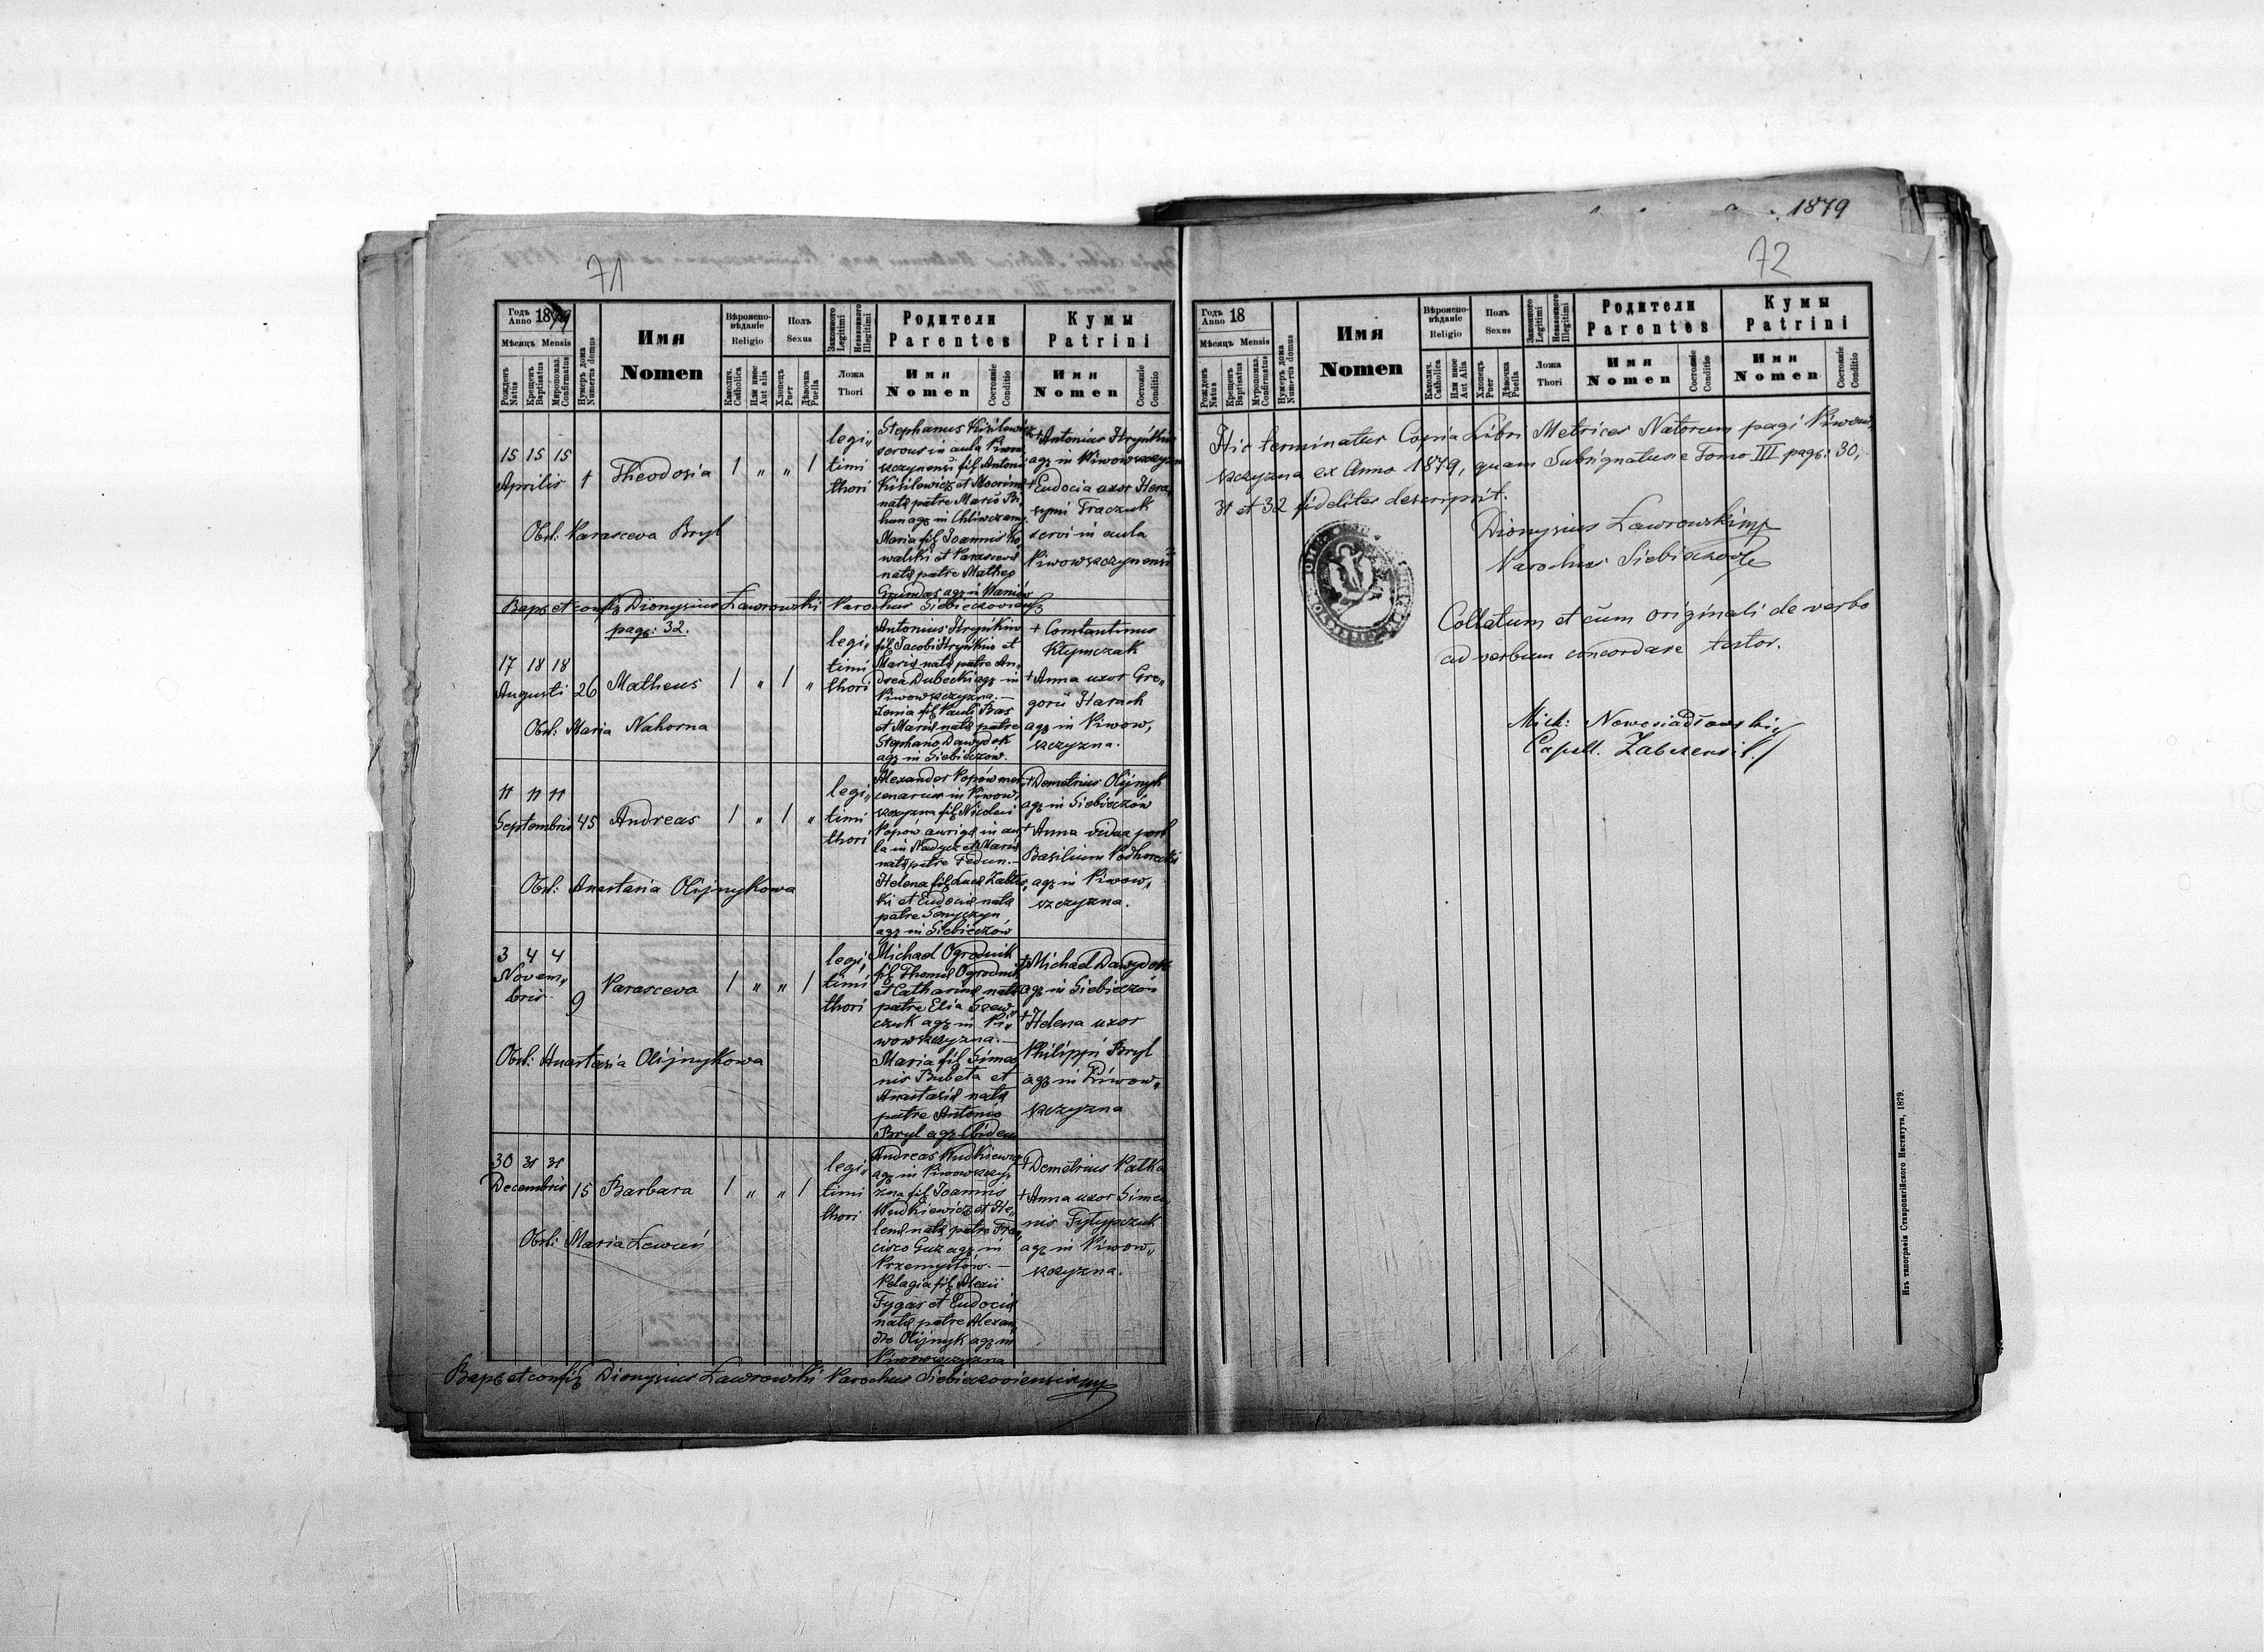 1879
71
Годъ Anno 1879
Мѣсяцъ Mensis
Рожденъ Natus
Крещенъ Baptisatus
Мѵропомаз. Confirmatus
Нумеръ дома Numerus domus
Имя
Nomen
Вѣроиспо-
вѣданіе
Religio
Католич. Catholica
Или иное Aut alia
Полъ
Sexus
Хлопецъ Puer
Дѣвочка Puella
Законного Legitimi
Незаконного Illegitimi
Ложа
Thori
Родители
Parentes
Имя
Nomen
Состояніе Conditio
Кумы
Patrini
Имя
Nomen
Состояніе Conditio
15 15 15
Aprilis
1
Theodosia
1 „ „ 1
legi„
timi
thori
Stephanus Kisilewicz
servus in aula Kiwow„
szczynensi fil. Antonii
Kisilewicz et
nata patre
in Chliwczany.
Maria fil. Joannis Ko„
walski et Parascevæ
nata patre Matheo
Grundas agr. in Waniów
+ Antonius Hrynkiw
agr. in Kiwowszczyzna
+ Eudocia uxor Hera„
symi Traczuk
servi in aula
Kiwowszczynensi
Obst: Parasceva Bryl
Bapt. et conf. Dionysius Ławrowski Parochus Siebieczoviensis
pag: 32.
17 18 18
Augusti
26
Matheus
1 „ 1 „
legi„
timi
thori
Antonius Hrynkiw
fil. Jacobi Hrynkiw et
Maria nata patre An„
drea Dubecki agr. in
Kiwowszczyzna. —
Xenia fil. Pauli Bras
et Maria nata patre
Stephano Dawydok
agr. in Siebieczów.
+ Constantinus
Klymczak
+ Anna uxor Gre„
gorii Harach
agr. in Kiwow„
szczyzna.
Obst: Maria Nahorna
11 11 11
Septembris
45
Andreas
1 „ 1 „
legi„
timi
thori
Alexander Popów mer„
cenarius in Kiwow„
szczyzna fil. Nicolai
Popów auriga in au„
la in Nadycz et Maria
nata patre Fedun. —
Helena fil. Luca
ki et Eudocia nata
patre
agr. in Siebieczów
+ Demetrius Olijnyk
agr. in Siebieczów
+ Anna vidua post
Basilium Podhorecki
agr. in Kiwow„
szczyzna.
Obst: Anastasia Olijnykowa
3 4 4
Novem„
bris
9
Parasceva
1 „ „ 1
legi„
timi
thori
Michael Ogrodnik
fil. Thoma Ogrodnik
et Catharina nata
patre Elia Szew„
czuk agr. in Ki„
wowszczyzna. —
Maria fil. Simeo„
nis Bubeta et
Anastasia nata
patre Antonio
Bryl agr. ibidem
+ Michael Dawydok
agr. in Siebieczów
+ Helena uxor
Philippi Bryl
agr. in Kiwow„
szczyzna
Obst: Anastasia Olijnykowa
30 31 31
Decembris
15
Barbara
1 „ „ 1
legi„
timi
thori
Andreas Wudkiewicz
agr. in Kiwowszczy„
zna fil. Joannis
Wudkiewicz et He„
lena nata patre Fran„
cisco Guz agr. in
Przemysłów. —
Pelagia fil. Alexii
Fygas et Eudocia
nata patre Alexan„
dro Olijnyk agr. in
Kiwowszczyzna
+ Demetrius Patka
+ Anna uxor Simeo„
nis Fylypczuk
agr. in Kiwow„
szczyzna.
Obst: Maria Lewuń
Bapt. et conf. Dionysius Ławrowski Parochus Siebieczoviensis mp
72
Годъ Anno 18
Мѣсяцъ Mensis
Рожденъ Natus
Крещенъ Baptisatus
Мѵропомаз. Confirmatus
Нумеръ дома Numerus domus
Имя
Nomen
Вѣроиспо-
вѣданіе
Religio
Католич. Catholica
Или иное Aut Alia
Полъ
Sexus
Хлопецъ Puer
Дѣвочка Puella
Законного Legitimi
Незаконного Illegitimi
Ложа
Thori
Родители
Parentes
Имя
Nomen
Состояніе Conditio
Кумы
Patrini
Имя
Nomen
Состояніе Conditio
Hic terminatur Copia Libri Metrices Natorum pagi Kiwow„
szczyzna ex Anno 1879, quam Subsignatus e Tomo III pag: 30,
31 et 32 fideliter descripsit.
Dionysius Ławrowski mp
Parochus Siebieczovæ
Collatum et cum originali de verbo
ad verbum concordare testor.
Mich: Nowosiadłowski
Capell. Zabczensis.
Изъ типографіи Ставропигійского Института, 1879.